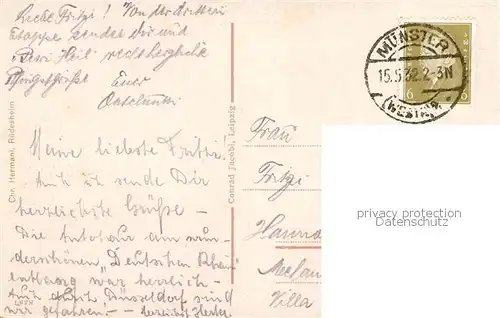 Liebe Fritzi! Von der dritten
Etappe sendet dir mit
"Berg Heil" recht herzliche
Pfingstgrüße
Euer
Meine liebste Fritzi.
Auch ich sende Dir
herzlichste Grüße –
Die Autotour am wun-
derschönen "Deutschen Rhein"
entlang war herrlich –
Auch durch Düsseldorf sind
wir gefahren. –
Chr. Hermani, Rüdesheim
Conrad Jacobi, Leipzig
MÜNSTER
15.5.32. 2-3N
(WESTF.)
6 6
Frau
Fritzi
Villa
privacy protection
Datenschutz